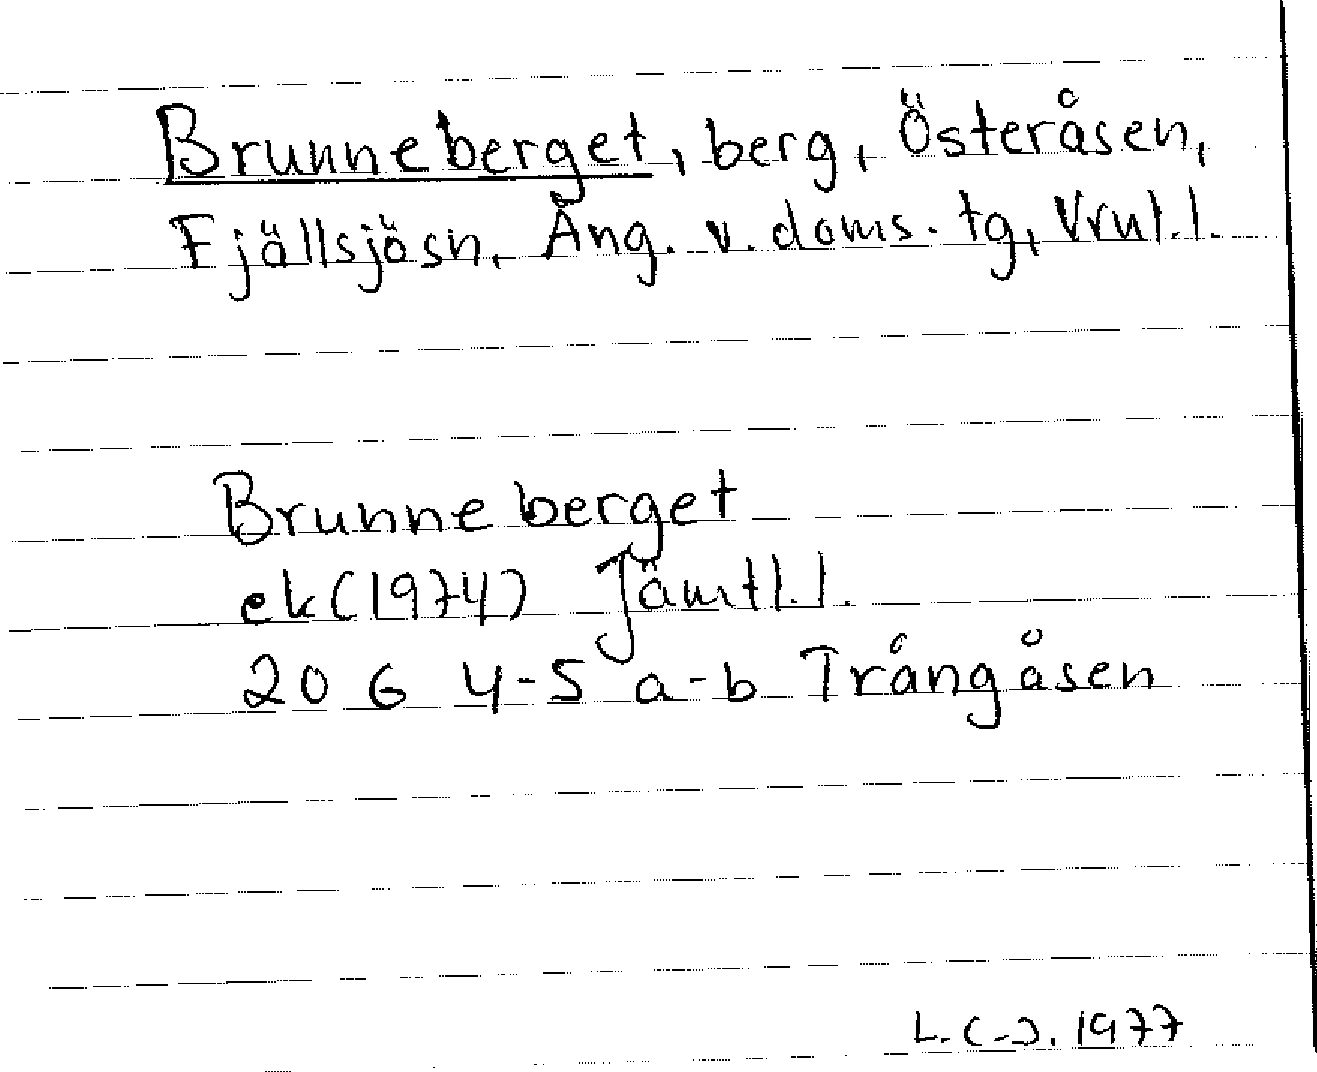 Brunneberget, berg, Österåsen,
Fjällsjösn, Ång. v. doms. tg, Vrnl.l.
Brunneberget
ek(1974) Jämtl.l.
20 G 4-5 a-b Trångåsen
1977